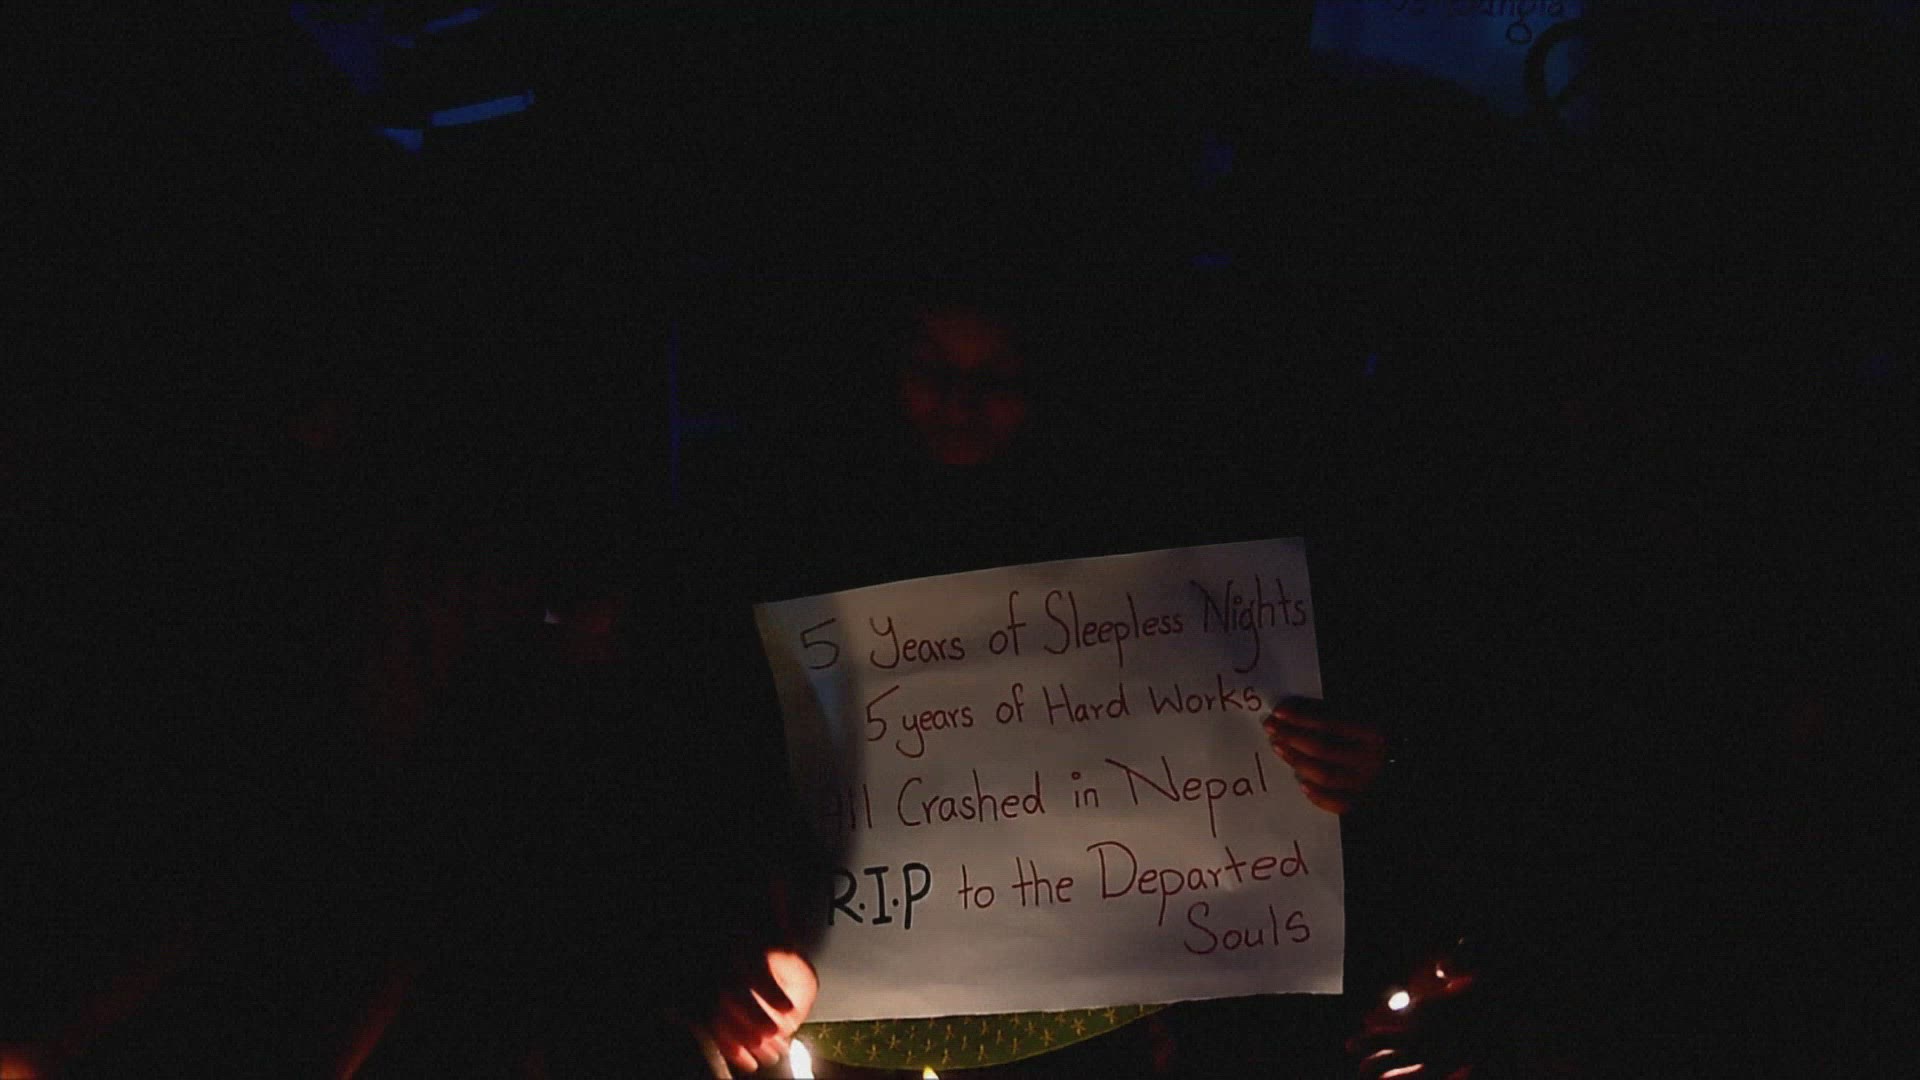 5 Years of Sleepless Nights
5 years of Hard Works
All Crashed in Nepal
R.I.P to the Departed
Souls